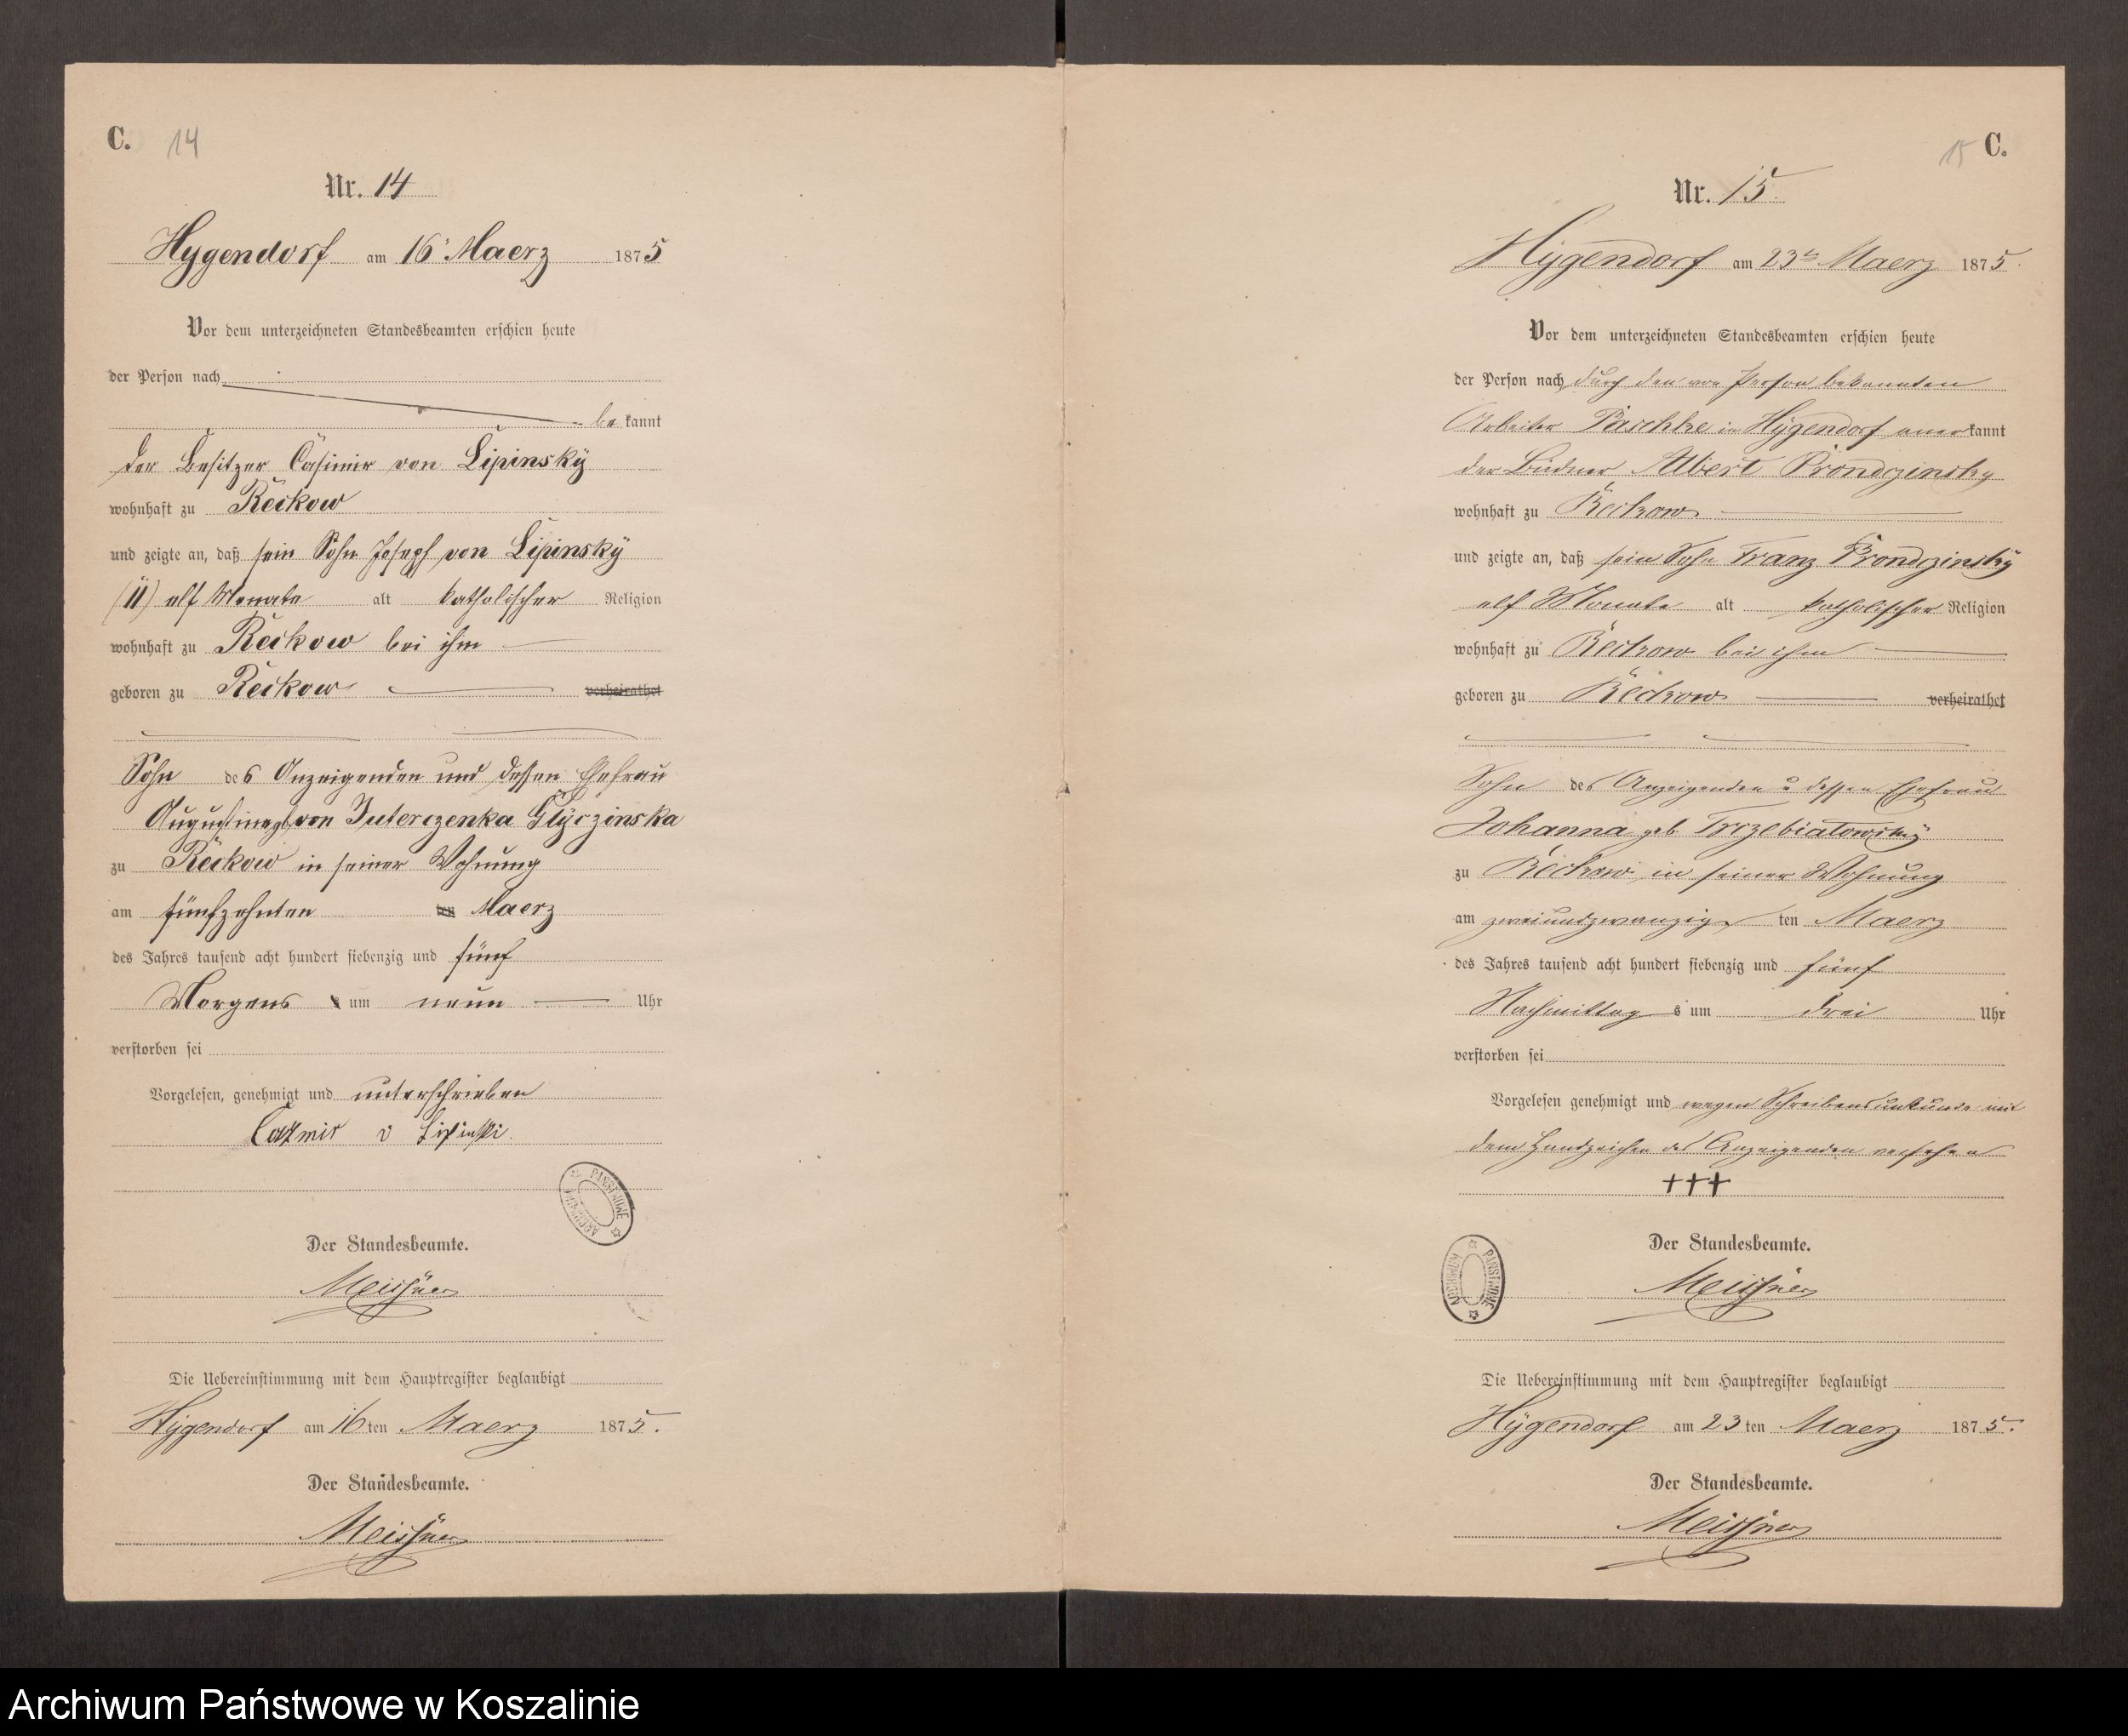 C. 14
Nr. 14
Hygendorf am 16t Maerz 1875
Vor dem unterzeichneten Standesbeamten erschien heute
der Person nach
bekannt
der Besitzer Casimir von Lipinsky
wohnhaft zu Reckow
und zeigte an, daß sein Sohn Joseph von Lipinsky
(11) elf Monate alt katholischer Religion
wohnhaft zu Reckow bei ihm
geboren zu Reckow verheirathet
Sohn des Anzeigenden und dessen Ehefrau
Augustine geb. von Juterczenka Glyczinska
zu Reckow in seiner Wohnung
am fünfzehnten ten Maerz
des Jahres tausend acht hundert siebenzig und fünf
Morgens s um neun Uhr
verstorben sei
Vorgelesen, genehmigt und unterschrieben
Cazmir v Lipinski
ARCHIWUM PAŃSTWOWE
Der Standesbeamte.
Meissner
Die Uebereinstimmung mit dem Hauptregister beglaubigt
Hygendorf am 16ten Maerz 1875.
Der Standesbeamte.
Meissner
15 C.
Nr. 15.
Hygendorf am 23t Maerz 1875.
Vor dem unterzeichneten Standesbeamten erschien heute
der Person nach durch den von Person bekannten
Arbeiter Paschke in Hygendorf anerkannt
der Büdner Albert Prondzinsky
wohnhaft zu Reckow
und zeigte an, daß sein Sohn Franz Prondzinsky
elf Monate alt katholischer Religion
wohnhaft zu Reckow bei ihm
geboren zu Reckow verheirathet
Sohn des Anzeigenden u dessen Ehefrau
Johanna geb. Trzebiatowsky
zu Reckow in seiner Wohnung
am zweiundzwanzig ten Maerz
des Jahres tausend acht hundert siebenzig und fünf
Nachmittag s um drei Uhr
verstorben sei
Vorgelesen genehmigt und wegen Schreibensunkunde mit
dem Handzeichen des Anzeigenden versehen
+++
ARCHIWUM PAŃSTWOWE
Der Standesbeamte.
Meissner
Die Uebereinstimmung mit dem Hauptregister beglaubigt
Hygendorf am 23ten Maerz 1875.
Der Standesbeamte.
Meissner
Archiwum Państwowe w Koszalinie